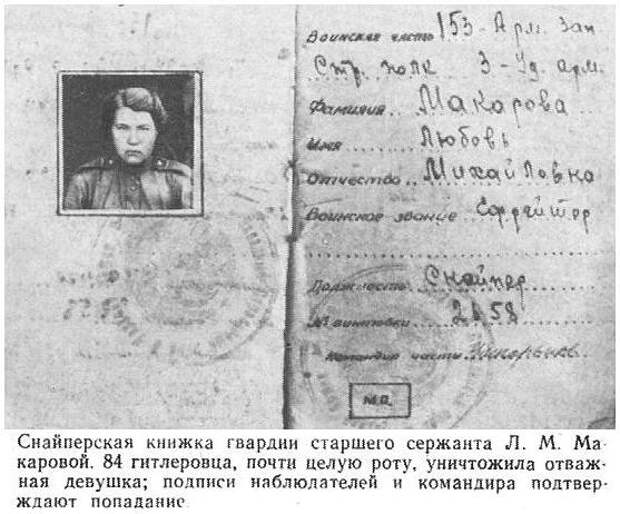 Воинская часть 153 Арм. зап
Стр. полк 3-Уд. арм.
Фамилия Макарова
Имя Любовь
Отчество Михайловна
Воинское звание Ефрейтор
Должность Снайпер
№ винтовки 2658
Командир части
М.П.
Снайперская книжка гвардии старшего сержанта Л. М. Ма-
каровой. 84 гитлеровца, почти целую роту, уничтожила отваж-
ная девушка; подписи наблюдателей и командира подтвер-
ждают попадание